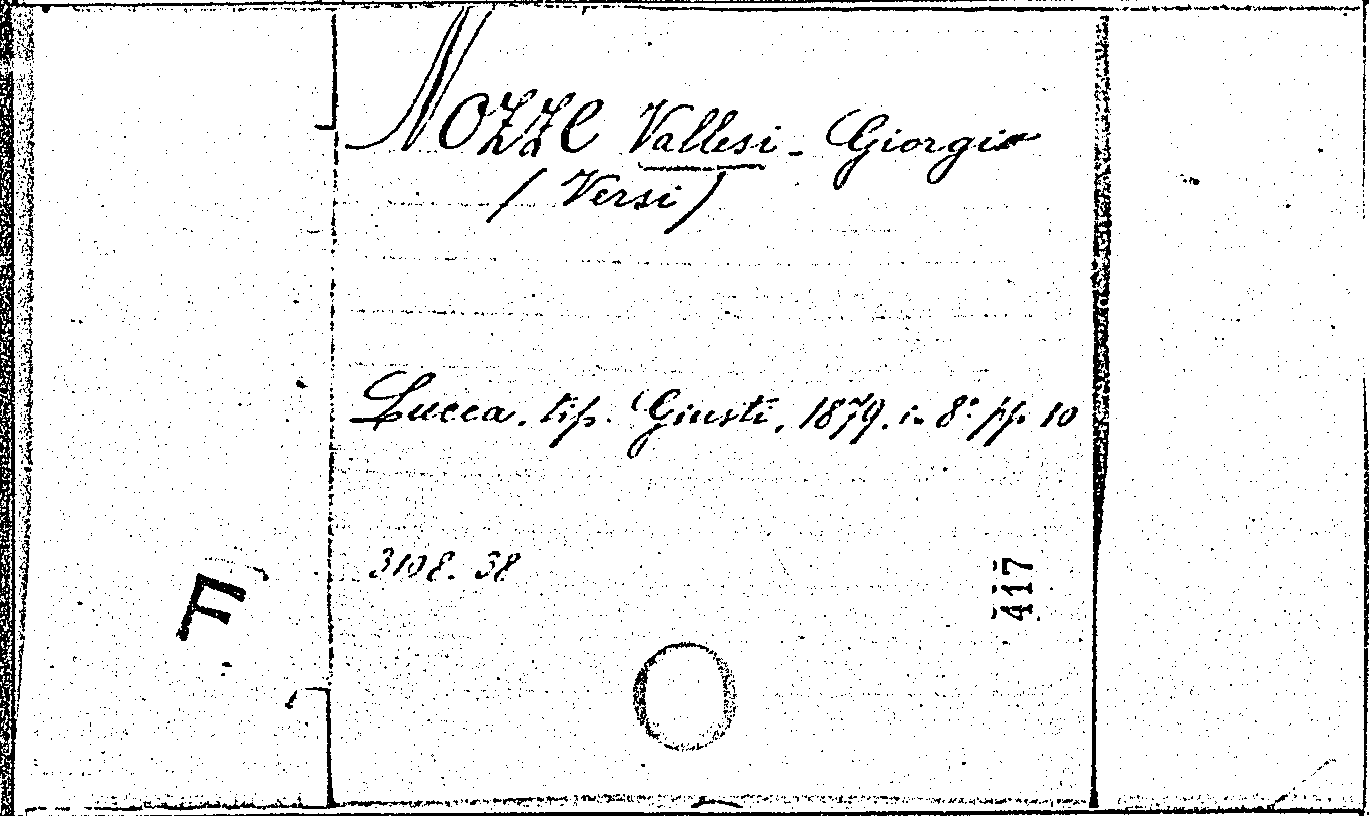 Nozze Vallesi - Giorgi
(Versi)
Lucca. tip. Giusti, 1879. in 8° pp 10
3108. 38
417
F